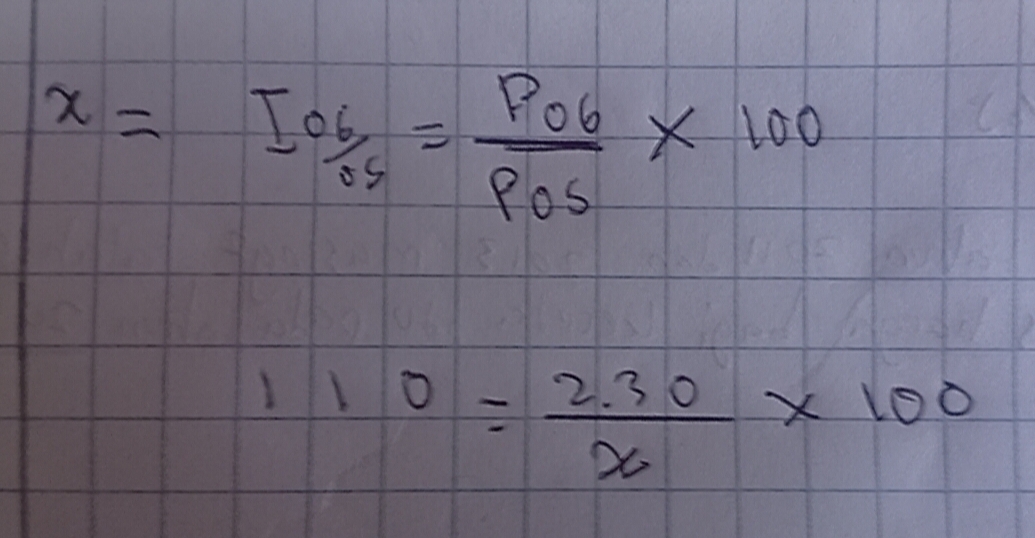 x = I 06/05 = P06/P05 × 100
110 = 2.30/x × 100